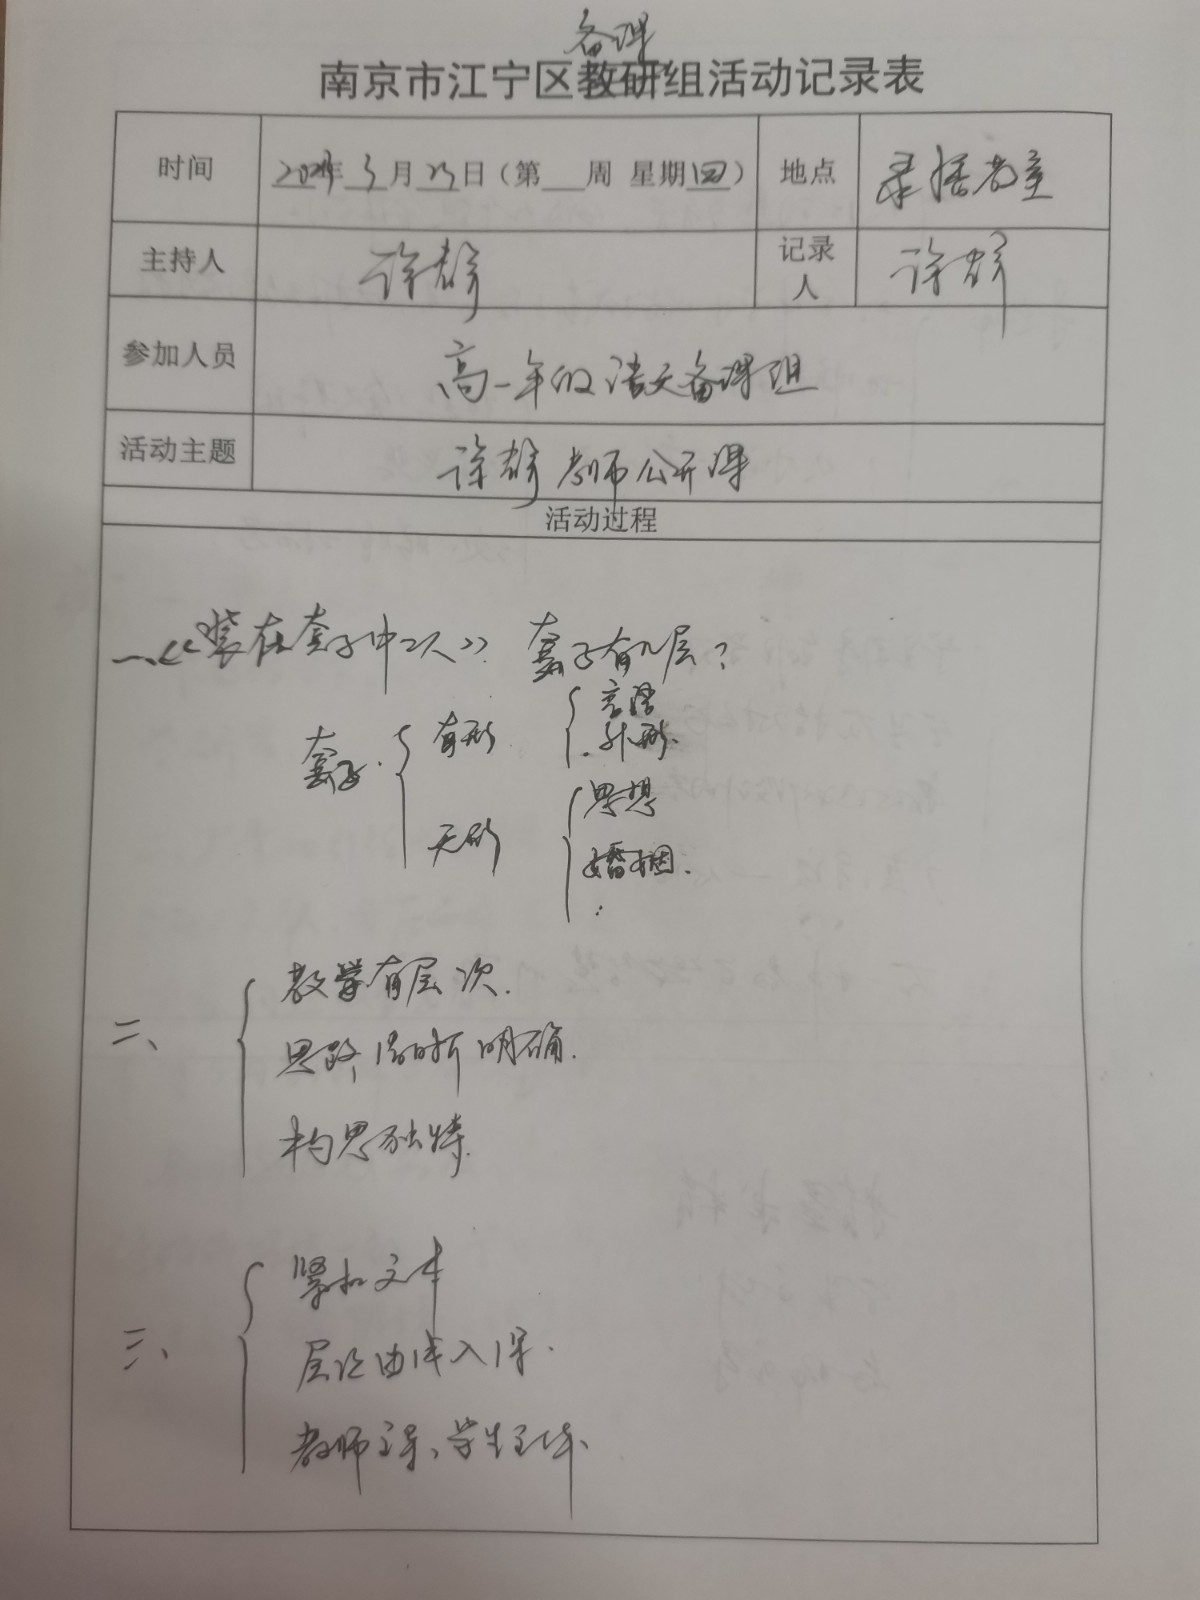 备课
南京市江宁区教研组活动记录表
时间 年 3月25日（第 周 星期四） 地点 录播教室
主持人 记录人
参加人员 高一年级语文备课组
活动主题 教师公开课
活动过程
一、《装在套子中之人》 套子有几层？
套子 有形 言语
外形
无形 思想
婚姻
二、 教学有层次
思路清晰明确
构思独特
三、 紧扣文本
层次由浅入深
教师主导、学生主体